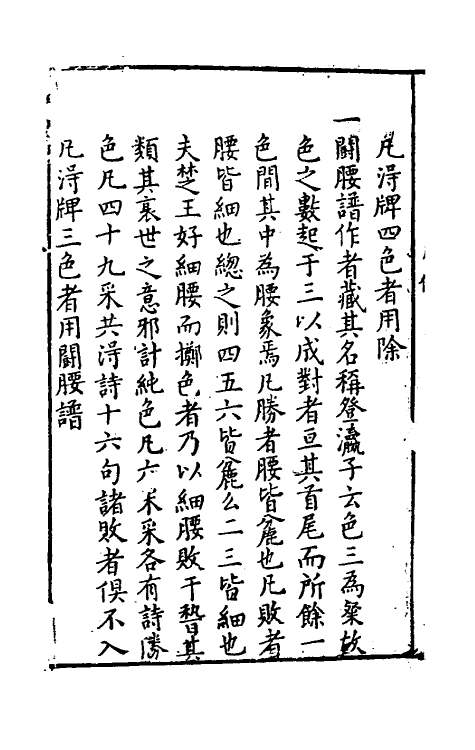 凡淂牌四色者用除
一鬭腰譜作者藏其名稱登瀛子云色三為粲故
色之數起于三以成對者亘其首尾而所餘一
色間其中為腰象焉凡勝者腰皆麄也凡敗者
腰皆細也總之則四五六皆麄么二三皆細也
夫楚王好細腰而擲色者乃以細腰敗干䂓其
類其衰世之意邪計純色凡六采采各有詩勝
色凡四十九采共淂詩十六句諸敗者俱不入
凡淂牌三色者用鬭腰譜